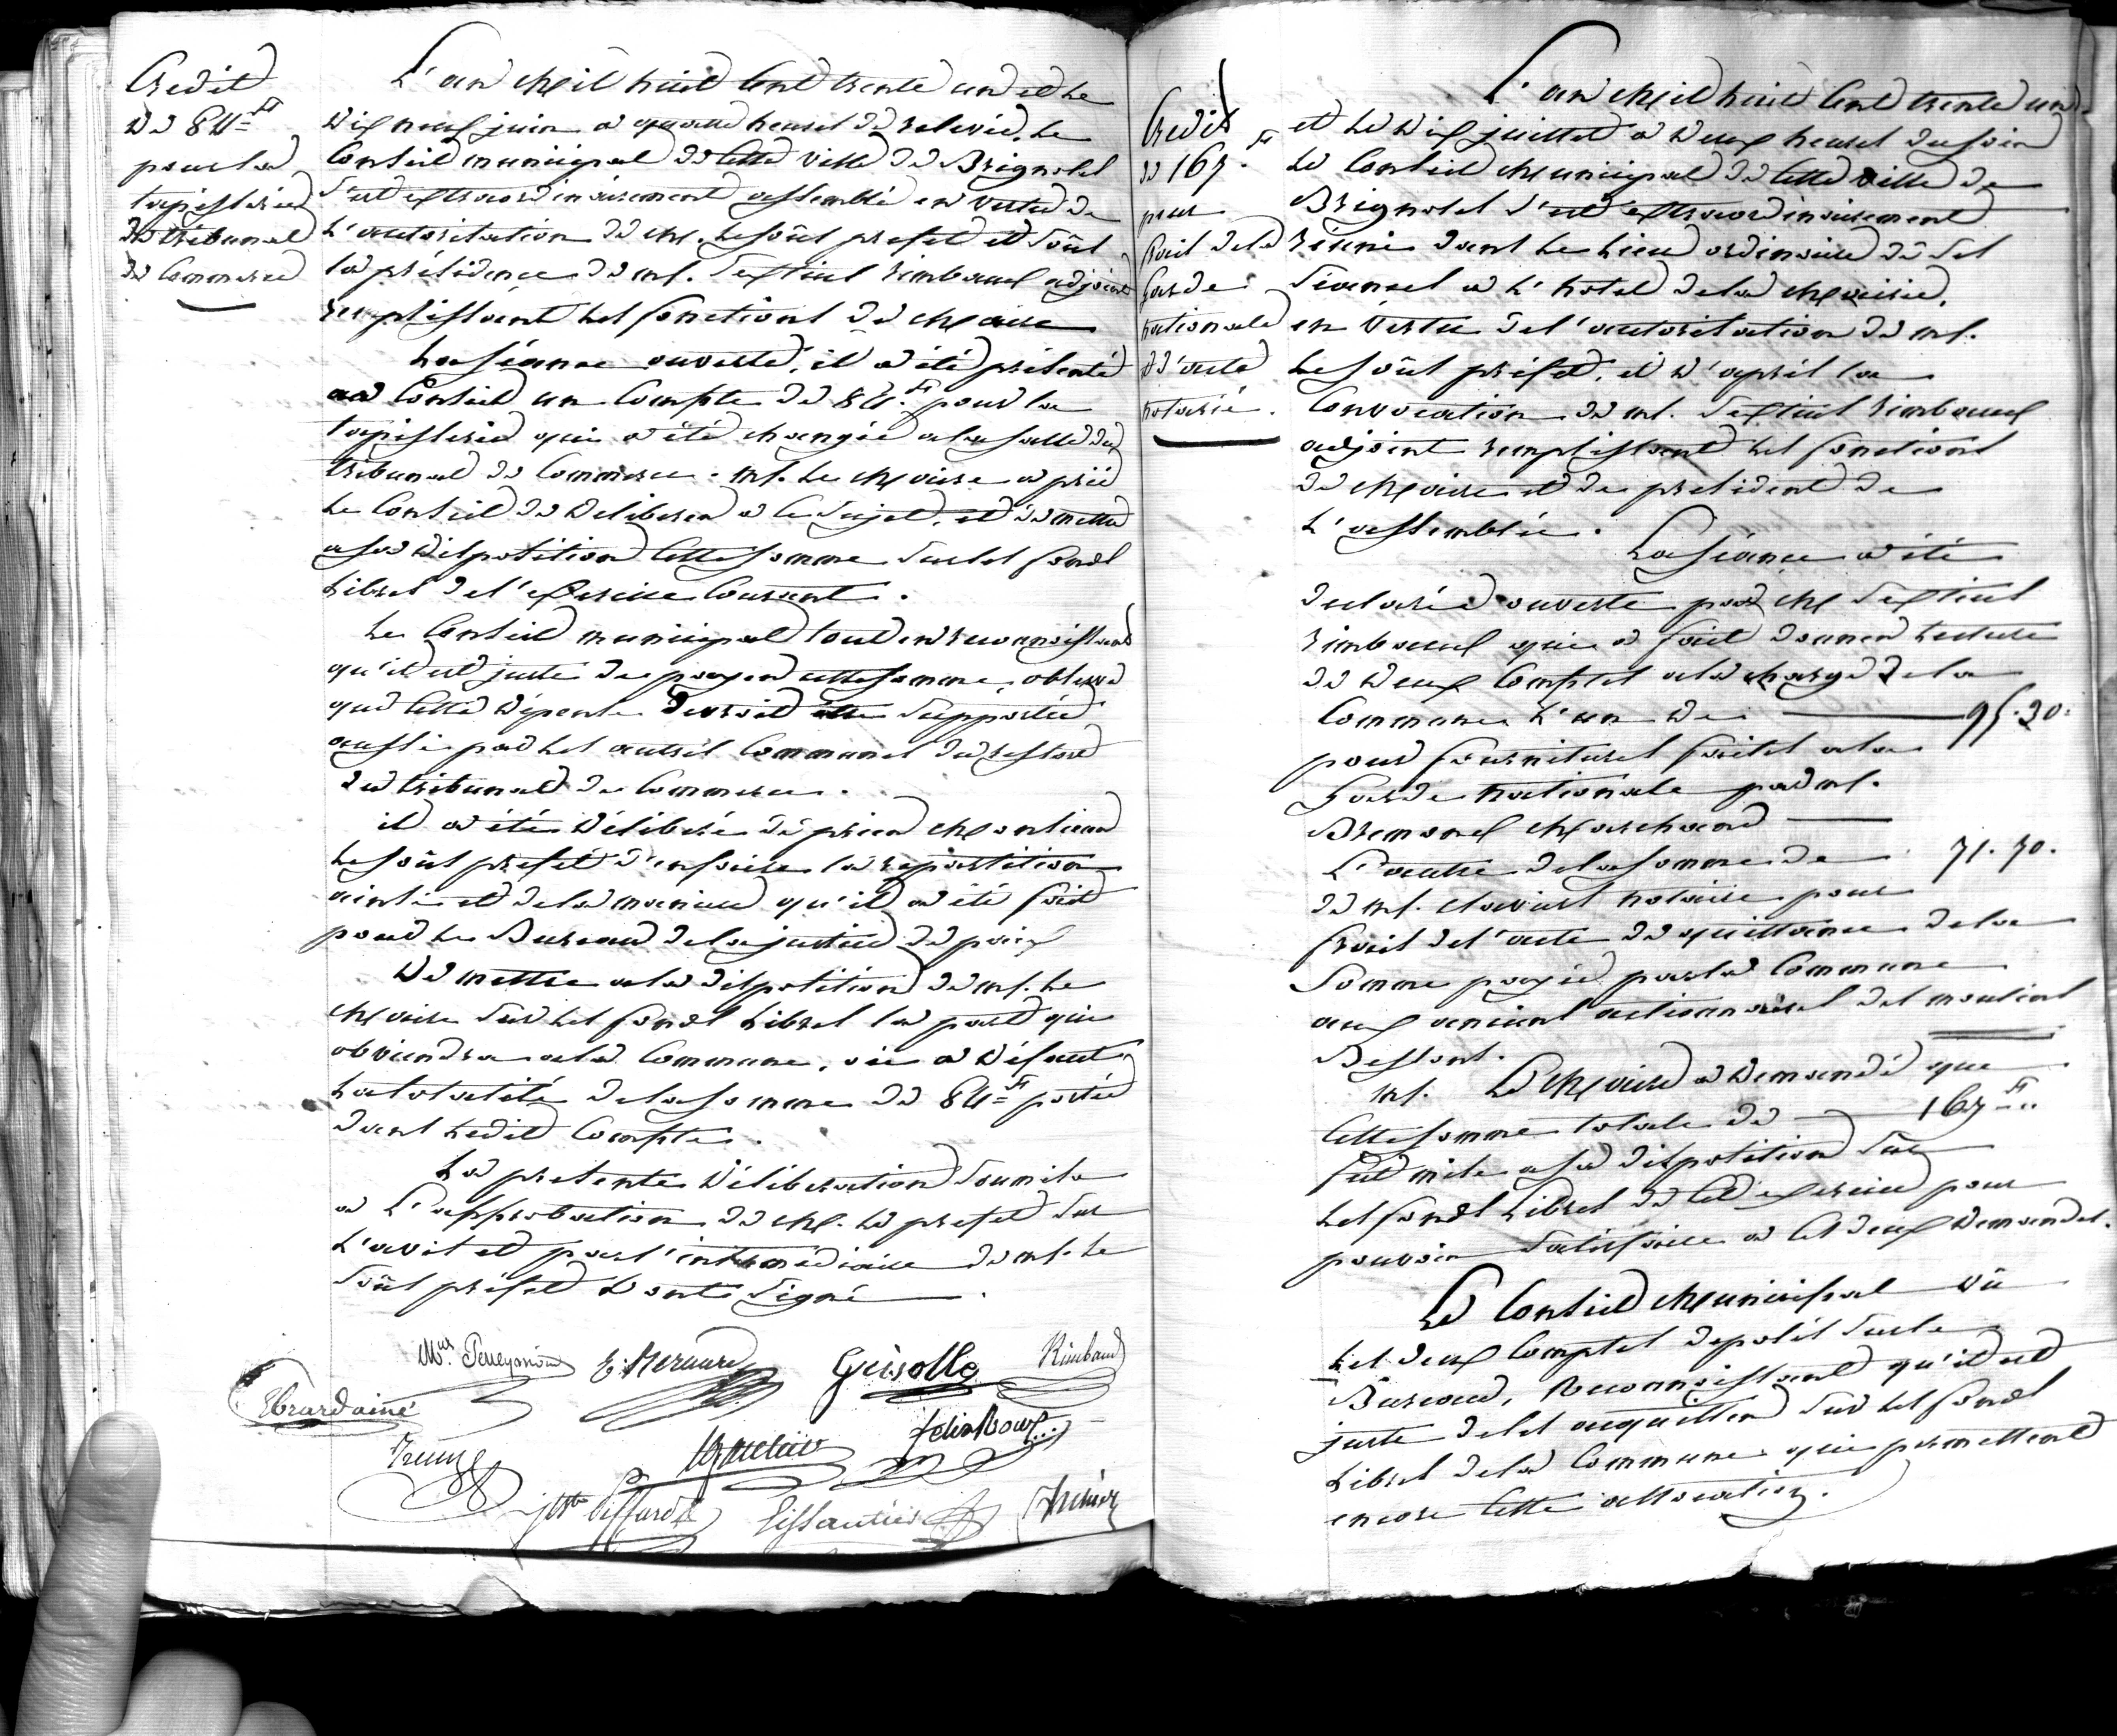 Credit
de 84 =ff
pour la
tapisserie
du tribunal
de Commerce
L'an Mil huit Cent trente un et le
dix neuf juin a quatre heures de relevée, le
Conseil municipal de cette ville de Brignoles
s'est extraordinairement assemblé en vertu de
l'autorisation de M. le sous prefet et sous
la présidence de M. Sextius Rimbaud adjoint
remplissant les fonctions de Maire
La séance ouverte, il a été présenté
au Conseil un Compte de 84.ff pour la
tapisserie qui a été changée a la salle du
tribunal de Commerce. M. le Maire a prié
le Conseil de deliberer a ce sujet, et de mettre
a sa disposition cette somme sur les fonds
libres de l'exercice Courant.
Le Conseil municipal tout en reconnoissant
qu'il est juste de payer cette somme, observe
que cette dépense devroit etre supportée
aussi par les autres Communes du ressort
du tribunal de Commerce.
il a été délibéré de prier Monsieur
le sous prefet d'en faire la repartition
ainsi et de la maniere qu'il a été fait
pour le Bureau de la justice de paix
De mettre a la disposition de M. le
Maire sur les fonds libres la part qui
obviendra a la Commune, ou a défaut
la totalité de la somme de 84=ff portée
dans ledit Compte.
La presente délibération soumise
a l'approbation de M. le prefet sur
l'avis et par l'intermédiaire de M. le
sous préfet et ont signé.
Grisolle
Rimbaud
Credit
de 167.ff
pour
frais de la
Garde
nationale
et d'acte
notarié.
L'an Mil huit Cent trente un
et le dix juillet a deux heures du soir
le Conseil Municipal de cette ville de
Brignoles s'est extraordinairement
réuni dans le lieu ordinaire de ses
séances a l'hotel de la Mairie,
en vertu de l'autorisation de M.
le sous prefet, et d'après la
Convocation de M. Sextius Rimbaud
adjoint remplissant les fonctions
de Maire et de president de
l'assemblée.
La séance a été
declarée ouverte par M Sextius
Rimbaud qui a fait donner lecture
de deux Comptes a la charge de la
Commune l'un de 95.30.
pour fournitures faites a la
Garde nationale par M.
Bremond Marchand
L'autre de la somme de 71.70.
de M. notaire pour
frais de l'acte de quittance de la
somme payée par la Commune
aux anciens actionnaires des moulins
Bessons.
M. Le Maire a demandé que
cette somme totale de 167 ff..
fut mise a sa disposition sur
les fonds libres de cet exercice pour
pouvoir satisfaire a ces deux demandes.
Le Conseil Municipal vû
les deux Comptes deposés sur le
Bureau, Reconnoissant qu'il est
juste de les acquitter sur les fonds
libres de la Commune qui permettent
encore cette allocation.